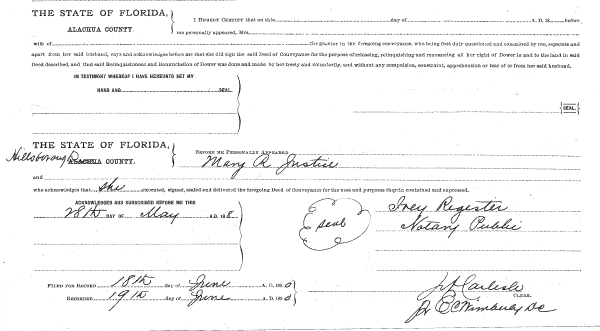 THE STATE OF FLORIDA,
ALACHUA COUNTY.
I HEREBY CERTIFY that on this day of A. D. 18 before
me personally appeared, Mrs.
wife of the grantor in the foregoing conveyance, who being first duly questioned and examined by me, separate and
apart from her said husband, says and acknowledges before me that she did sign the said Deed of Conveyance for the purpose of releasing, relinquishing and renouncing all her right of Dower in and to the land in said
Deed described, and that said Relinquishment and Renunciation of Dower was done and made by her freely and voluntarily, and without any compulsion, constraint, apprehension or fear of or from her said husband.
IN TESTIMONY WHEREOF I HAVE HEREUNTO SET MY
HAND AND SEAL
SEAL
THE STATE OF FLORIDA,
Hillsborough ALACHUA COUNTY.
BEFORE ME PERSONALLY APPEARED
Mary A Justice
and
who acknowledges that she executed, signed, sealed and delivered the foregoing Deed of Conveyance for the uses and purposes therein contained and expressed.
ACKNOWLEDGED AND SUBSCRIBED BEFORE ME THIS
28th DAY OF May A.D. 18
seal
Ivey Register
Notary Public
FILED FOR RECORD 18th day of June A. D. 18
RECORDED 19th day of June A. D. 18
CLERK.